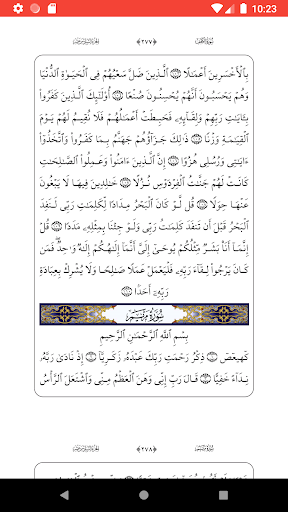 10:23
﴿٢٧٧﴾
بِٱلْأَخْسَرِينَ أَعْمَٰلًا ۝ ٱلَّذِينَ ضَلَّ سَعْيُهُمْ فِى ٱلْحَيَوٰةِ ٱلدُّنْيَا
وَهُمْ يَحْسَبُونَ أَنَّهُمْ يُحْسِنُونَ صُنْعًا ۝ أُو۟لَٰٓئِكَ ٱلَّذِينَ كَفَرُوا۟
بِـَٔايَٰتِ رَبِّهِمْ وَلِقَآئِهِۦ فَحَبِطَتْ أَعْمَٰلُهُمْ فَلَا نُقِيمُ لَهُمْ يَوْمَ
ٱلْقِيَٰمَةِ وَزْنًا ۝ ذَٰلِكَ جَزَآؤُهُمْ جَهَنَّمُ بِمَا كَفَرُوا۟ وَٱتَّخَذُوٓا۟
ءَايَٰتِى وَرُسُلِى هُزُوًا ۝ إِنَّ ٱلَّذِينَ ءَامَنُوا۟ وَعَمِلُوا۟ ٱلصَّٰلِحَٰتِ
كَانَتْ لَهُمْ جَنَّٰتُ ٱلْفِرْدَوْسِ نُزُلًا ۝ خَٰلِدِينَ فِيهَا لَا يَبْغُونَ
عَنْهَا حِوَلًا ۝ قُل لَّوْ كَانَ ٱلْبَحْرُ مِدَادًا لِّكَلِمَٰتِ رَبِّى لَنَفِدَ
ٱلْبَحْرُ قَبْلَ أَن تَنفَدَ كَلِمَٰتُ رَبِّى وَلَوْ جِئْنَا بِمِثْلِهِۦ مَدَدًا ۝ قُلْ
إِنَّمَآ أَنَا۠ بَشَرٌ مِّثْلُكُمْ يُوحَىٰٓ إِلَىَّ أَنَّمَآ إِلَٰهُكُمْ إِلَٰهٌ وَٰحِدٌ ۖ فَمَن
كَانَ يَرْجُوا۟ لِقَآءَ رَبِّهِۦ فَلْيَعْمَلْ عَمَلًا صَٰلِحًا وَلَا يُشْرِكْ بِعِبَادَةِ
رَبِّهِۦٓ أَحَدًۢا ۝
سُورَةُ مَرْيَمَ
بِسْمِ ٱللَّهِ ٱلرَّحْمَٰنِ ٱلرَّحِيمِ
كٓهيعٓصٓ ۝ ذِكْرُ رَحْمَتِ رَبِّكَ عَبْدَهُۥ زَكَرِيَّآ ۝ إِذْ نَادَىٰ رَبَّهُۥ
نِدَآءً خَفِيًّا ۝ قَالَ رَبِّ إِنِّى وَهَنَ ٱلْعَظْمُ مِنِّى وَٱشْتَعَلَ ٱلرَّأْسُ
﴿٢٧٨﴾